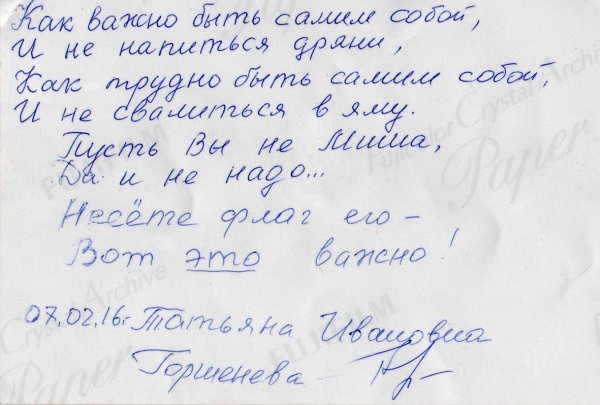 Как важно быть самим собой,
И не напиться дряни,
Как трудно быть самим собой,
И не свалиться в яму.
Пусть Вы не Миша,
Да и не надо...
Несёте флаг его –
Вот это важно!
07.02.16г. Татьяна Ивановна
Горшенева